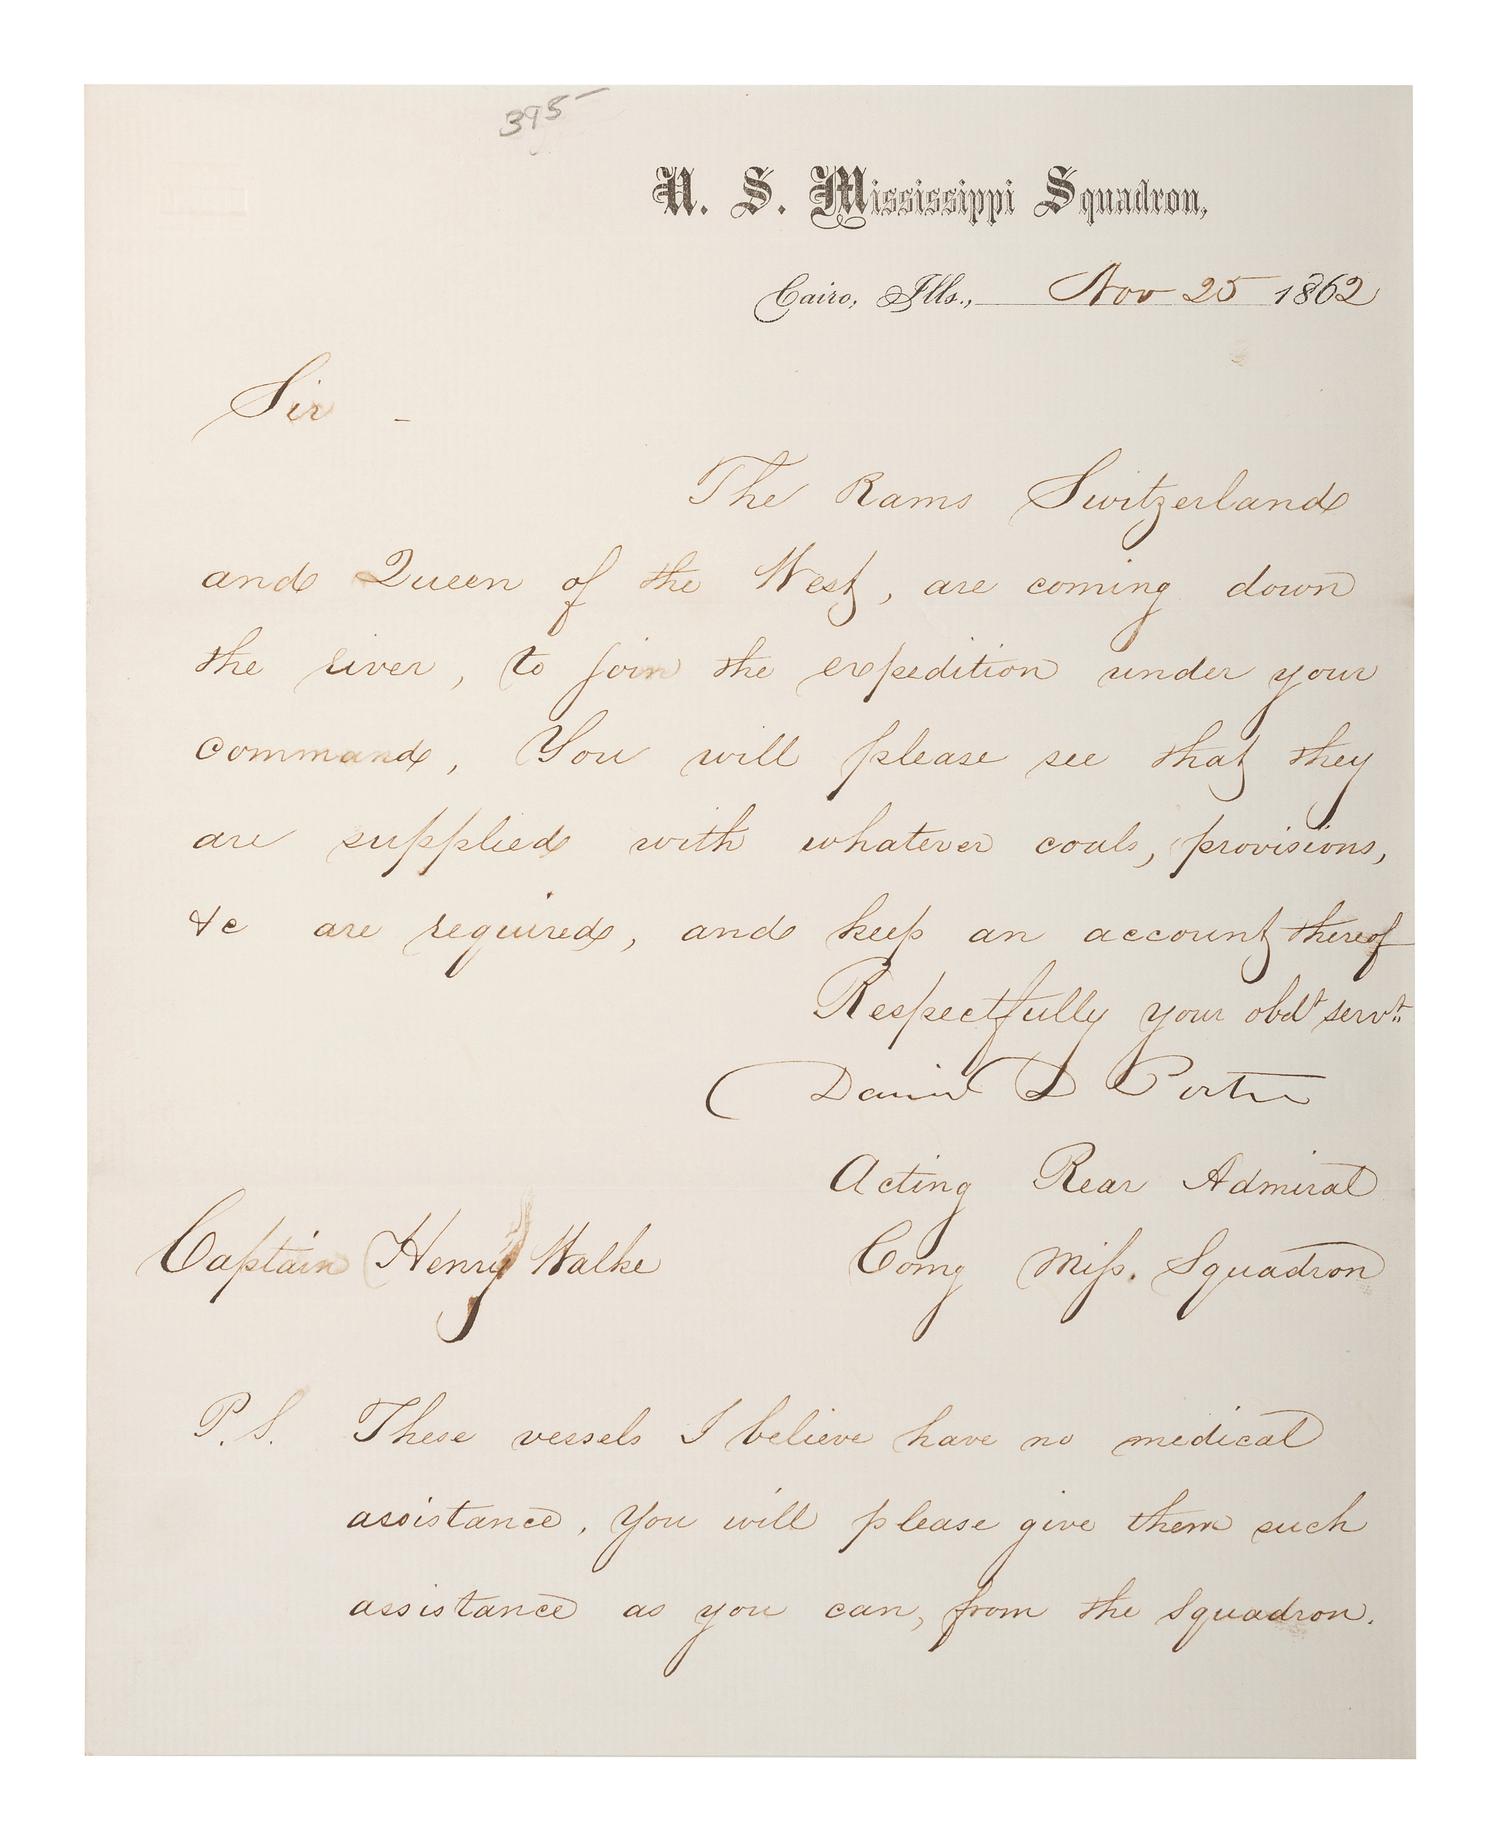 395-
U. S. Mississippi Squadron,
Cairo, Ills., Nov 25 1862
Sir -
The Rams Switzerland
and Queen of the West, are coming down
the river, to join the expedition under your
command, You will please see that they
are supplied with whatever coals, provisions,
&c are required, and keep an account thereof
Respectfully your obdt servt
David D Porter
Acting Rear Admiral
Captain Henry Walke Comg Miss. Squadron
P. S. These vessels I believe have no medical
assistance. You will please give them such
assistance as you can, from the squadron.